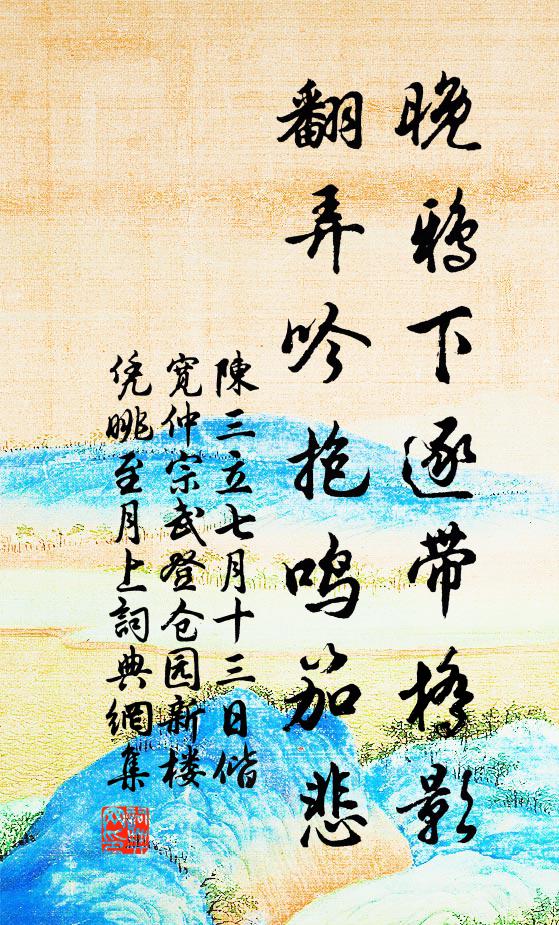 晚鸦下逐带桥影
翻弄吟抱鳴笳悲
陳三立七月十三日偕
寬仲宗武登仓园新楼
凭眺至月上詞典網集